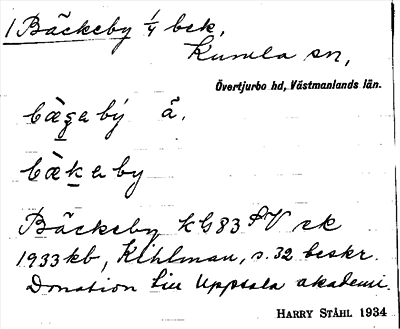 1 Bäckeby 1/4 bek.
Kumla sn,
Övertjurbo hd, Västmanlands län.
bæ̀gabý å.
bæ̀kaby
Bäckeby KG83 SV ek
1933 kb, Kihlman, s. 32 beskr.
Donation till Uppsala akademi.
HARRY STÅHL 1934